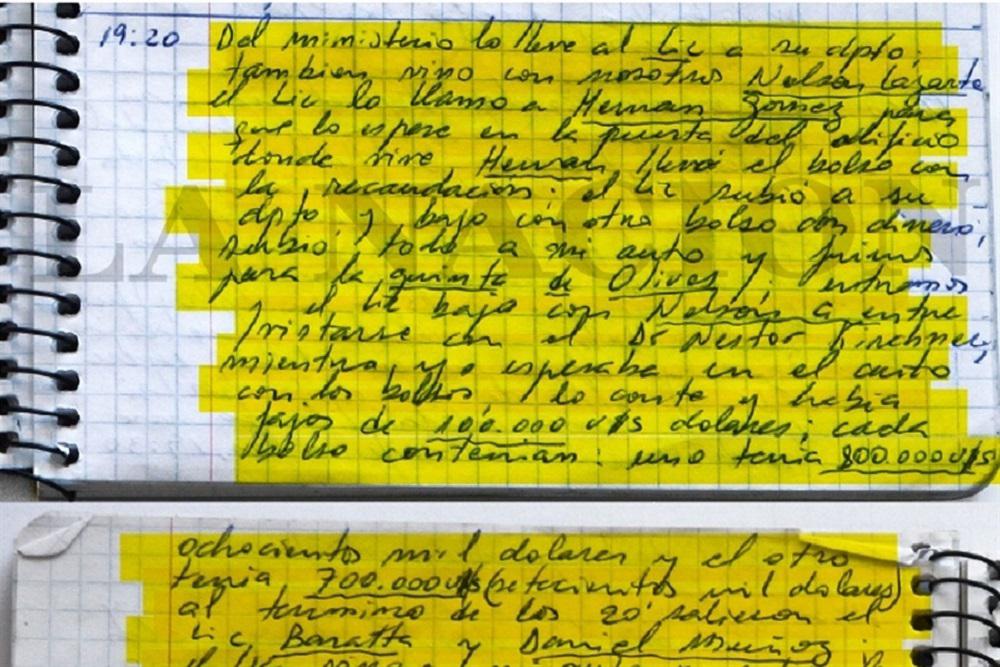 19:20 Del ministerio lo lleve al Lic a su dpto;
tambien vino con nosotros Nelson Lazarte
el Lic lo llamo a Hernan Gomez para
que lo espere en la puerta del edificio
donde vive Hernan, llevó el bolso con
la recaudacion; el Lic subió a su
dpto y bajo con otro bolso con dinero;
subio todo a mi auto y fuimos
para la quinta de Olivos; entramos
y el Lic bajo con Nelson a entre
vistarse con el Dr Nestor Kirchner,
mientras yo esperaba en el auto
con los bolsos, lo conte y habia
fajos de 100.000 u$s dolares; cada
bolso contenian: uno tenia 800.000 u$s
LA NACION
ochocientos mil dolares y el otro
tenia 700.000 u$s (setecientos mil dolares)
al termino de los 20' salieron el
Lic Baratta y Daniel Muñoz;
el Lic